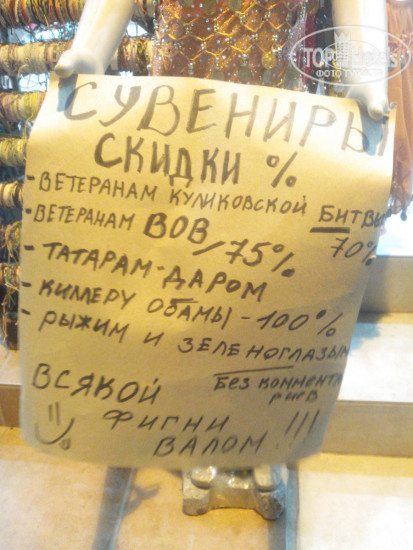 СУВЕНИРЫ
СКИДКИ %
- ВЕТЕРАНАМ КУЛИКОВСКОЙ БИТВЫ 70%
- ВЕТЕРАНАМ ВОВ / 75%
- ТАТАРАМ - ДАРОМ
- КИЛЛЕРУ ОБАМЫ - 100%
- РЫЖИМ И ЗЕЛЕНОГЛАЗЫМ
БЕЗ КОММЕНТА
РИЕВ
ВСЯКОЙ
ФИГНИ
ВАЛОМ !!!